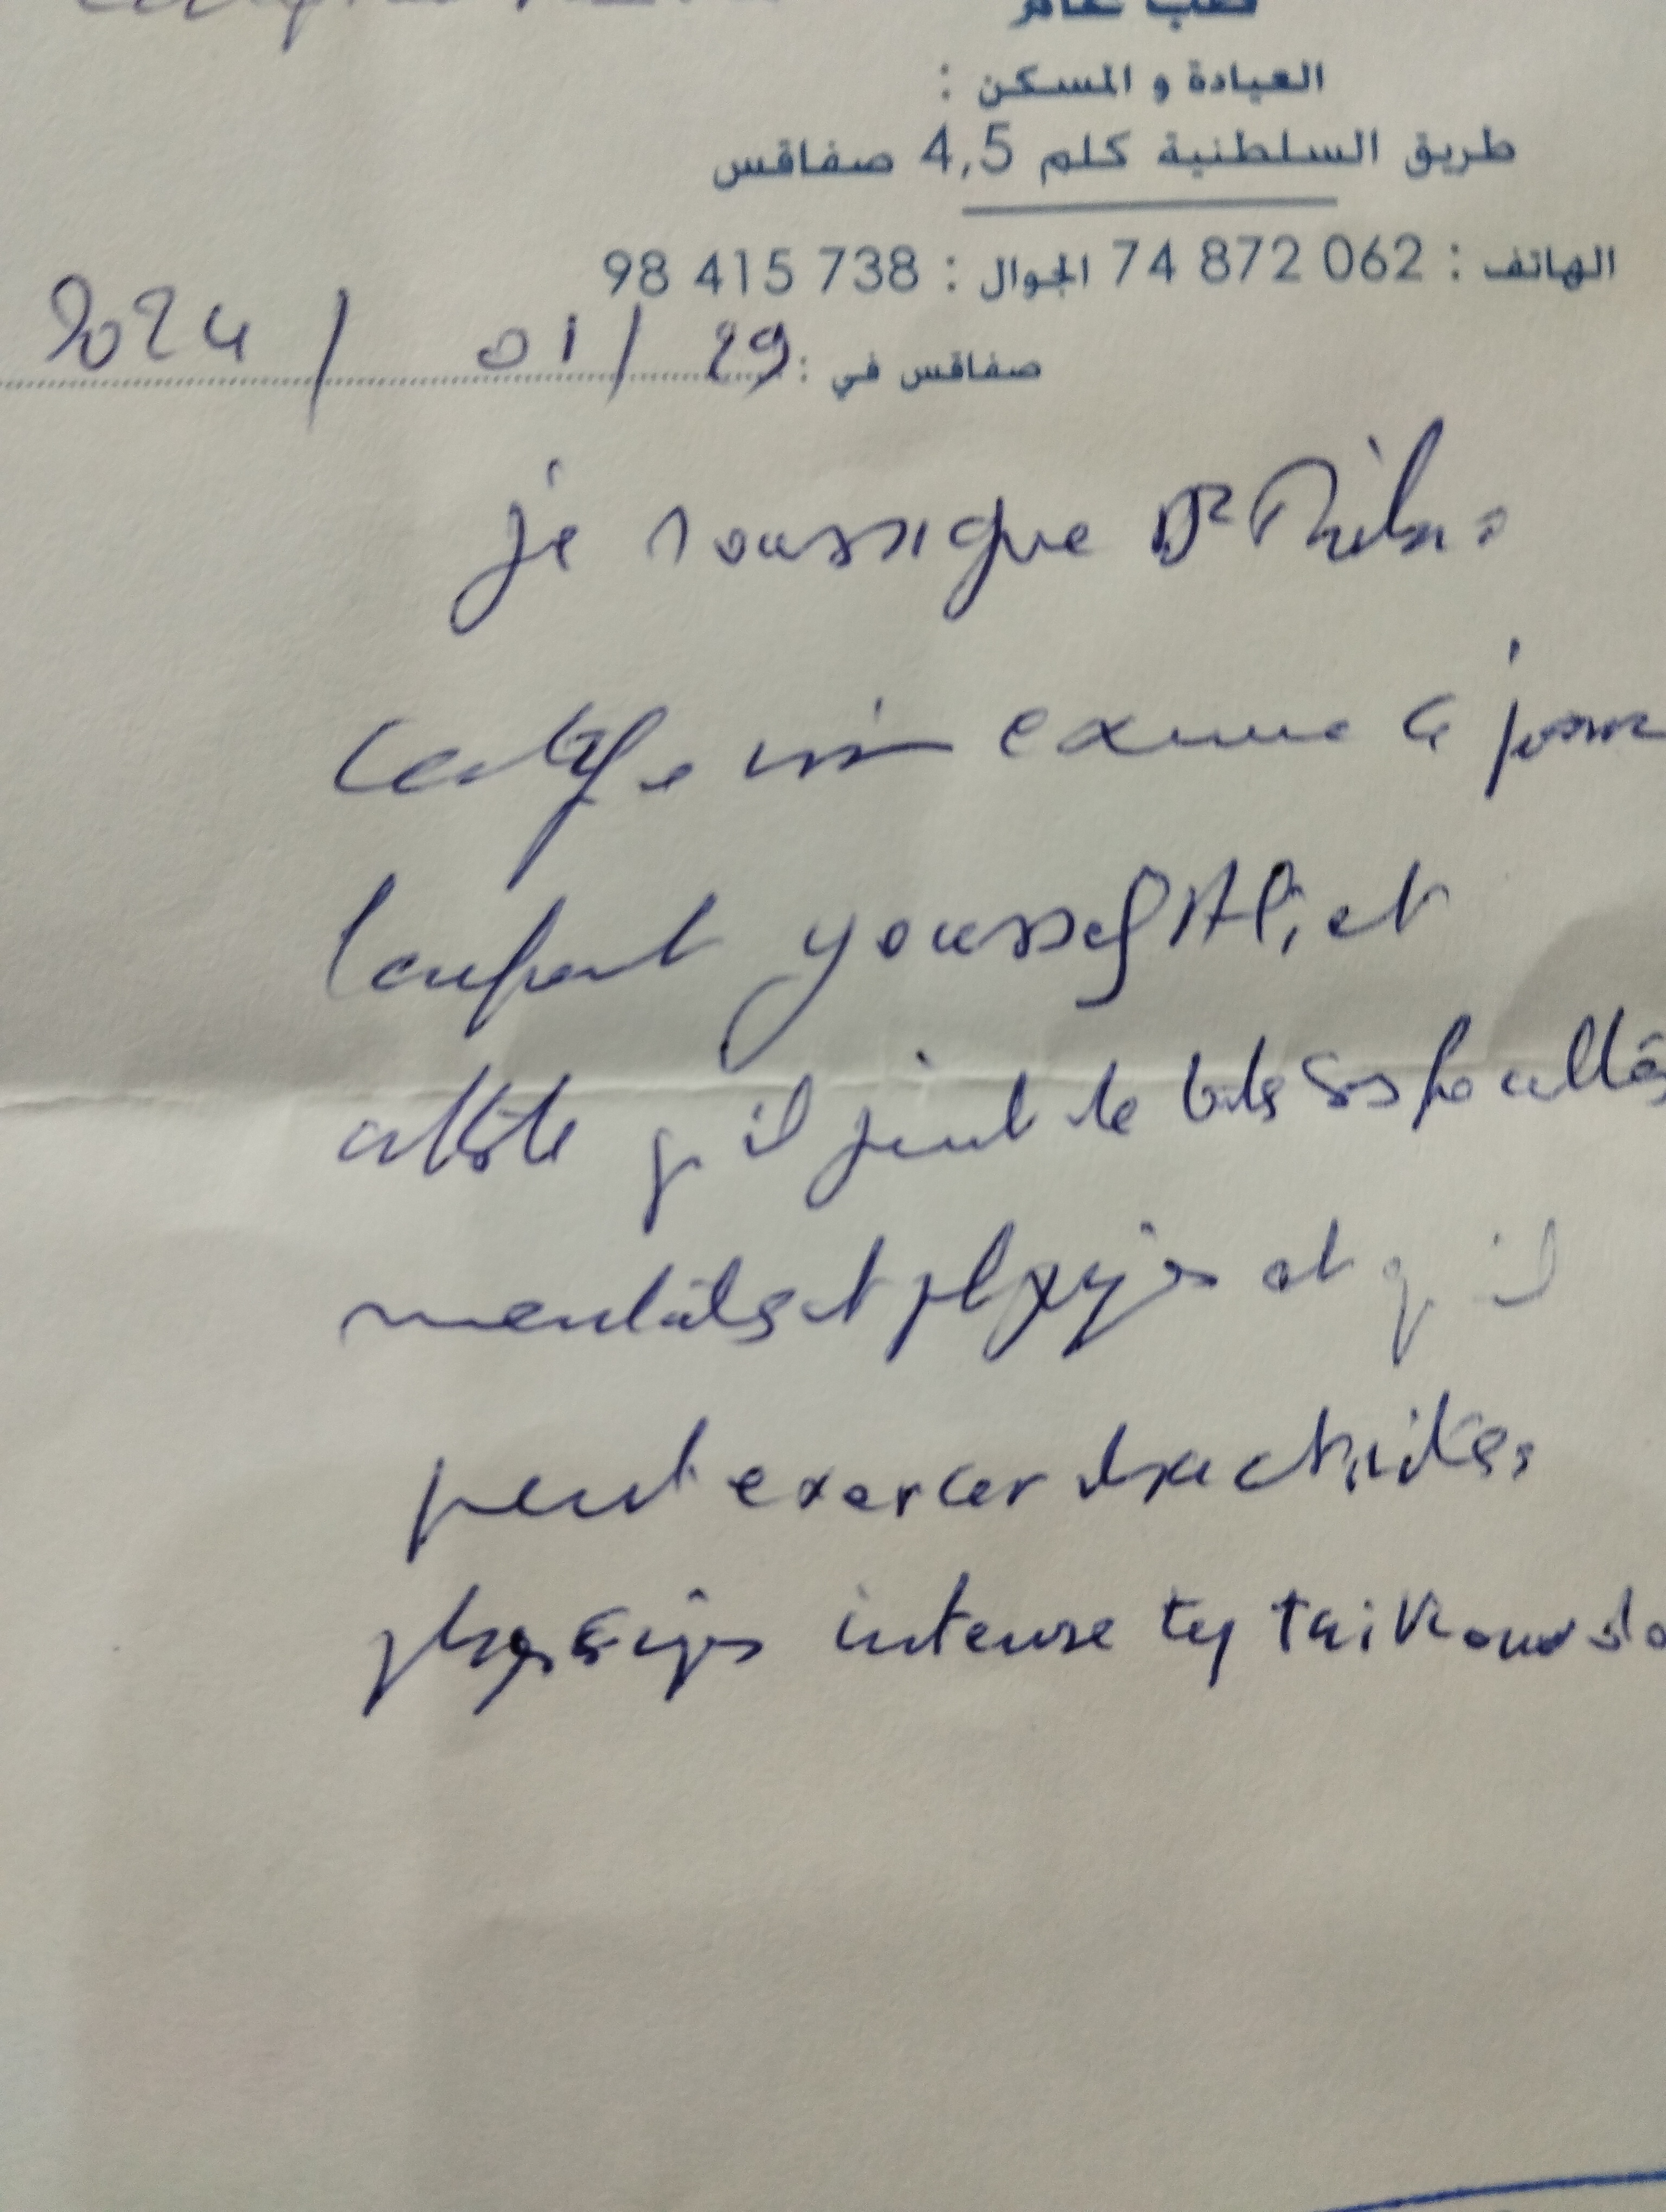 طب عام
العيادة و المسكن :
طريق السلطنية كلم 4,5 صفاقس
الهاتف : 062 872 74 الجوال : 738 415 98
صفاقس في : 29 / 01 / 2024
je soussigne Dr
certifie avoir examine ce jour
l'enfant youssef Ali, et
atteste q'il jouit de toutes ses facultés
mentales et physiqs et q'il
peut exercer des activités
physiqs intense tq taikowndo